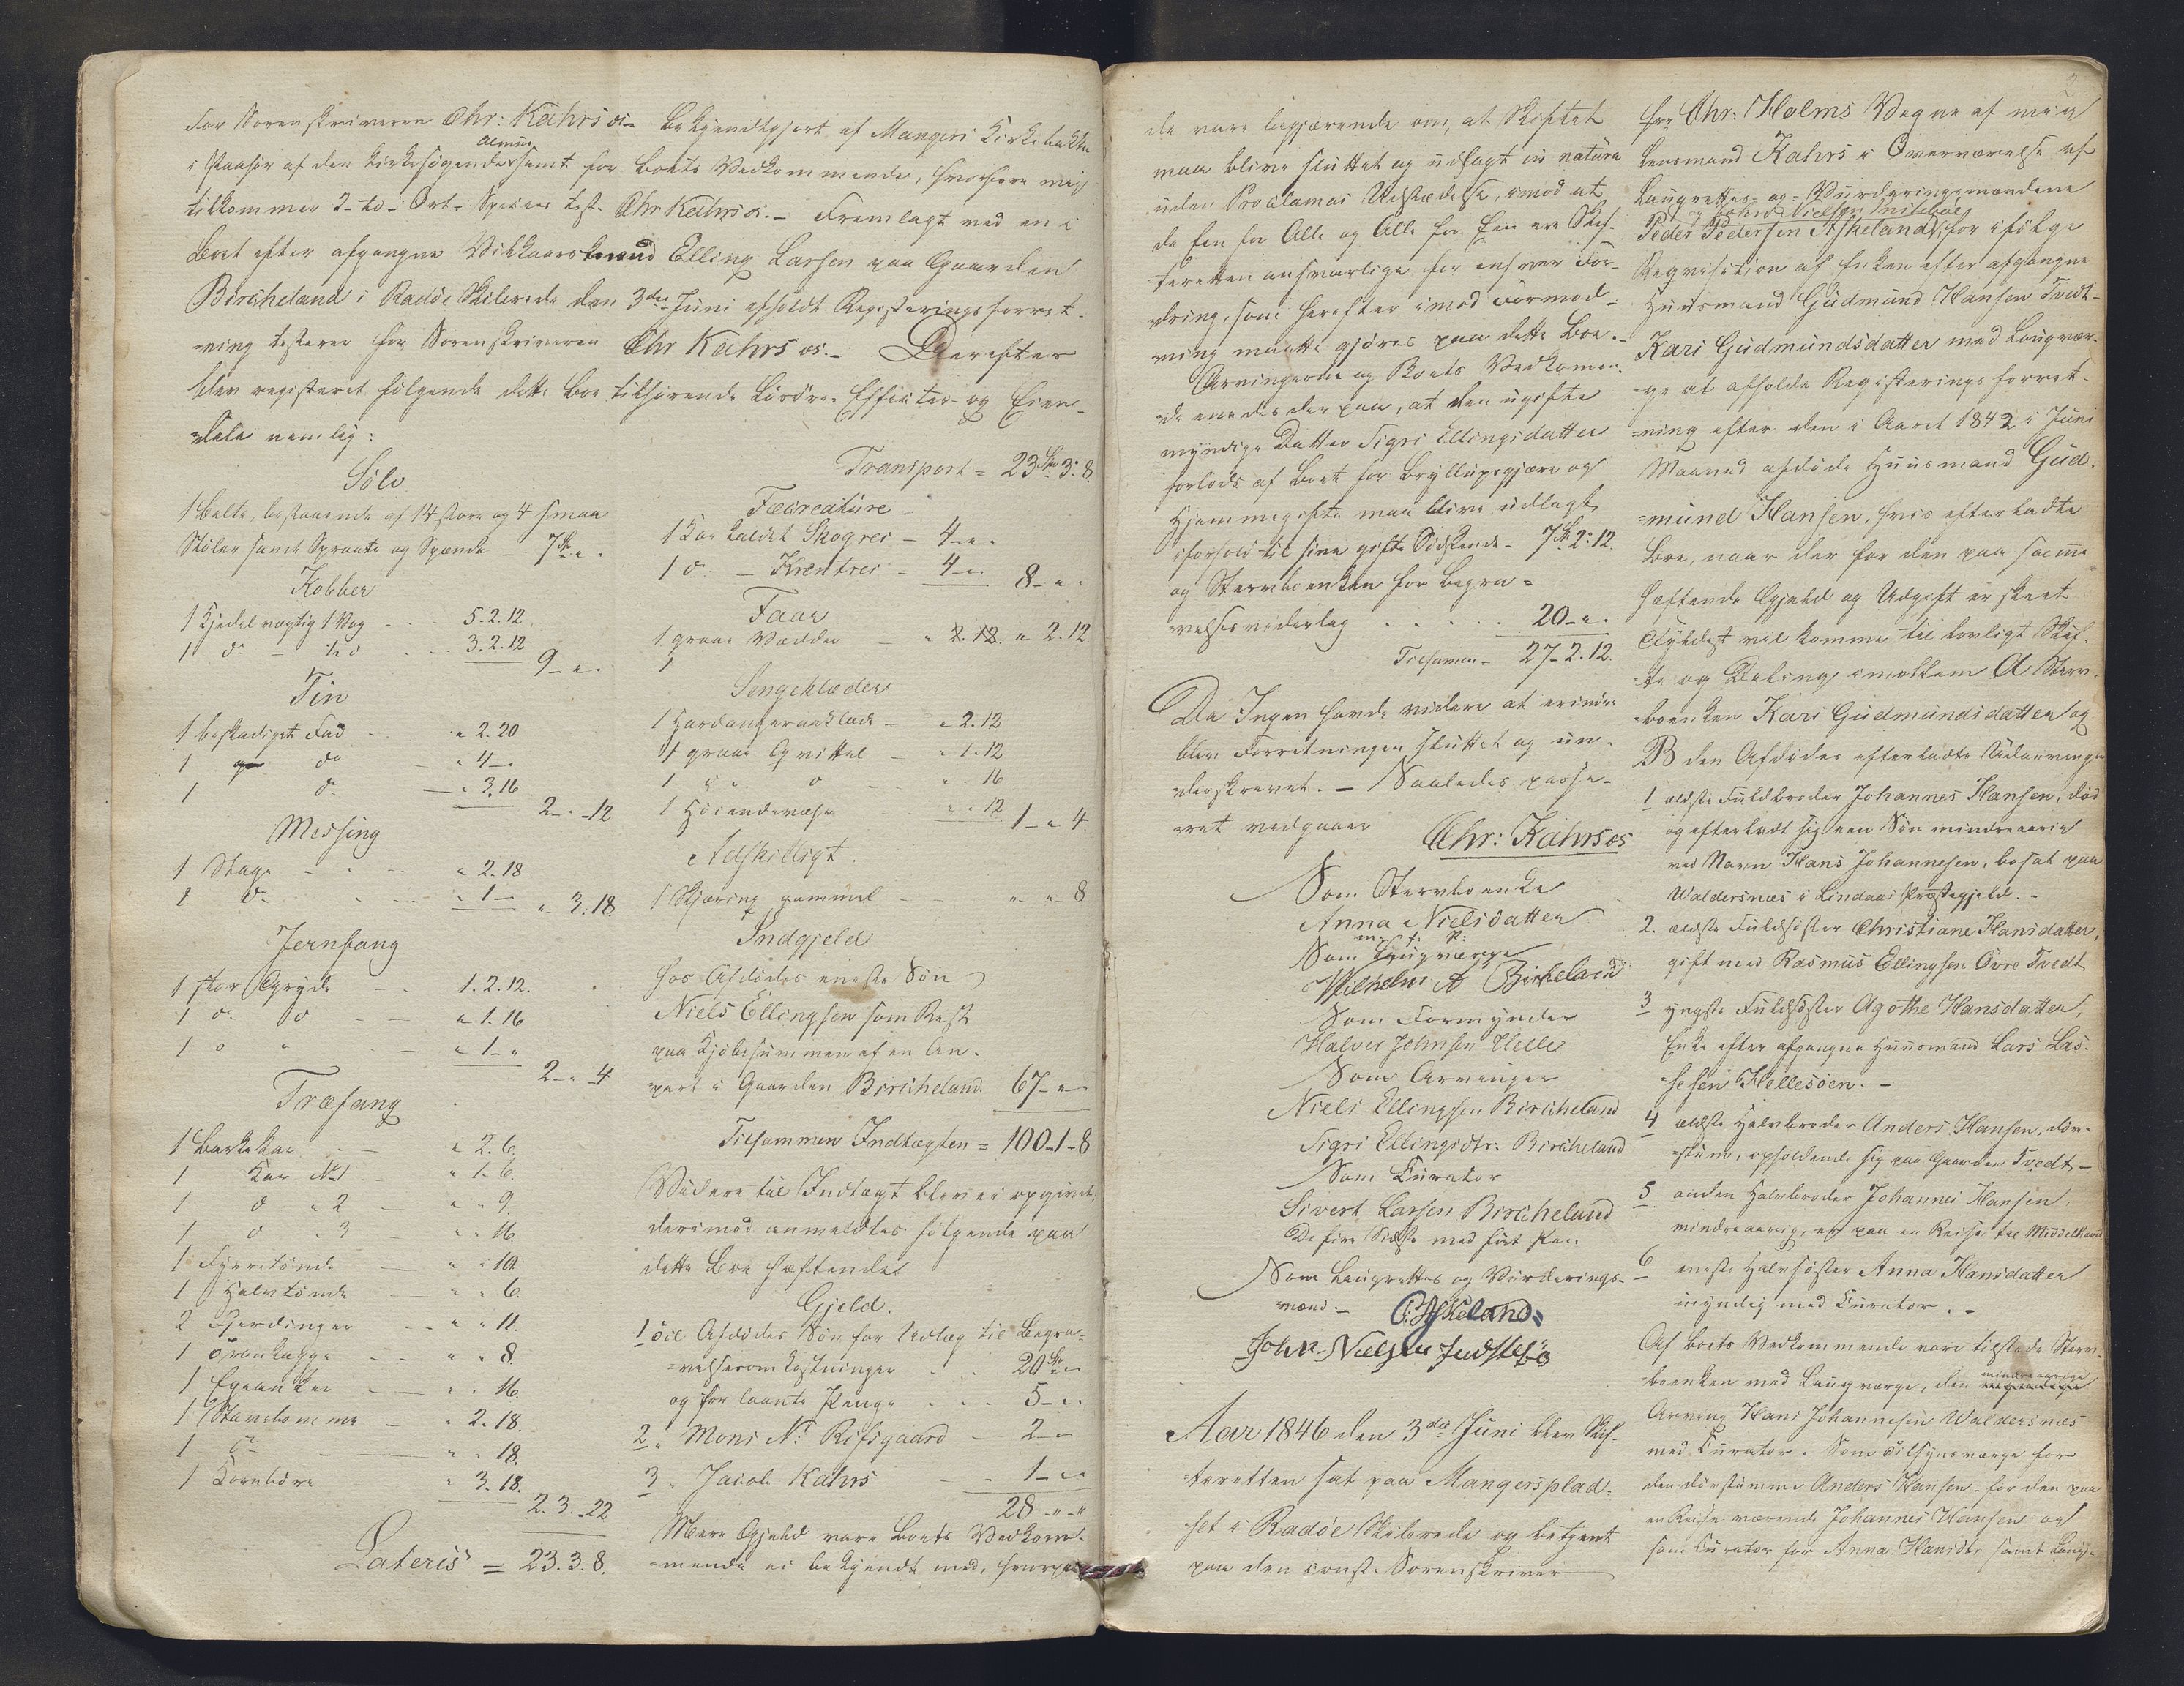 For Sorenskriveren Chr: Kahrs os.- bekjendtgjort af Mangers Kirkebakke
i Paahør af den kirkesøgende Almue samt for Boets Vedkommende, hvorfore mig
tilkommer 2- to - Ort- Species test. Chr Kahrs os.- Fremlagt ved en i
Boet efter afgangne Vilkaarsmand Elling Larsen paa Gaarden
Bircheland i Radøe Skibrede den 3die Juni afholdt Registeringsforret-
-ning testerer for Sorenskriveren Chr Kahrs os.- Derefter
blev registeret følgende dette Boe tilhørende Løsøre- Effecter- og Eien-
-dele nemlig:
Sølv
1 Belte, bestaaende af 14 store og 4 smaa
Støler samt Sproate og Spænde - 7 Sp " "
Kobber
1 Kjedel vægtig 1 Vog - - 5.2.12
1 do - 1/2 d - - 3.2.12
9 - " "
Tin
1 beskadiget Fad - " 2.20
1 do - " 4 - "
1 do - " 3.16
2 - " - 12
Messing
1 Stage - - " 2.18
1 do - - " 1 -
" 3.18
Jernfang
1 stor Gryde - - 1.2.12.
1 do d - - " 1.16
1 d " - " 1 - "
2 - " 4
Træfang
1 Barkekar - - " 2.6.
1 Kar No 1 - " 1.6.
1 d " 2 - " " 9.
1 d " 3 - " " 16.
1 Fyrretønde - " " 10
1 Halvtønde - " " 6.
2 Fjerdinger - " " 11.
1 " " 8.
1 - " " 16.
1 - " 2.18.
1 do - " " 18.
1 - " 3.18.
2.3.22
Lateris = 23.3.8.
Transport = 23 Sp 3 " 8.
Fæcreature -
1 Koe kaldet Skogrei - 4 - " "
1 d - Krentrei - 4 - " "
8 - " "
Faar
1 graae Vædder - " 2.12. " 2.12
1
Sengeklæder
1 Hardangeraaklæde - " 2.12
1 graae Qvittel - " 1.12
1 d " d - " " 16
1 Høiendevær - " " 12
1 - " 4.
Adskilligt.
1 Skjæring gammel - - " " 8
Indgjeld
hos Afdødes eneste Søn
Niels Ellingsen som Rest
paa Kjøbesummen af en An-
part i Gaarden Bircheland 67 - " -
Tilsammen Indtægten = 100-1-8
Videre til Indtægt blev ei opgivet,
derimod anmeldtes følgende paa
dette Boe hæftende
Gjeld.
1 til Afdødes Søn for Udlæg til Begra-
=velsesomkostninger - - 20 Sp " "
og for laante Penge - - - 5 - " "
2 " Mons Ns Risisgaard - 2 - "
3 " Jacob Kahrs - - 1 - " "
28 - " - "
Mere Gjeld vare Boets Vedkom-
-mende ei bekjendt med, hvorpaa
de vare begjærende om, at Skiftet
maa blive sluttet og udlagt in natura
uden Proclamas Udstædelse, imod at
de Een for Alle og Alle for Een ere Skif-
-teretten ansvarlige for enhver For-
-dring, som herefter imod Formod-
-ning maatte gjøres paa dette Boe.-
Arvingerne og Boets Vedkommen-
de enedes derpaa, at den ugifte
myndige Datter Sigri Ellingsdatter
forlods af Boet for Bryllupsgjøre og
Hjemmegifte maa blive udlagt,
iforhold til sine gifte Sødskende - 7 Sp 2 " 12.
og Stervboenken for Begra =
velsesvederlag . . . . . 20 - " .
Tilsamen - 27 - 2.12.
Da Ingen havde videre at erindre
blev Forretningen sluttet og un-
derskrevet. - Saaledes passe-
-ret vedgaaer Chr: Kahrs os
Som Stervboenke
Anna Nielsdatter
m. f. P:
Som Laugværge
Wilhelm A Birkeland
Som Formynder
Halver Johnsen Helle
Som Arvinger
Niels Ellingsen Bircheland
Sigri Ellingsdtr. Bircheland
Som Curator
Sivert Larsen Bircheland
De fire Sidste medført Pen.
Som Laugrettes og Vurderings-
-mænd.- P. Askeland.
John Nielsen
Aar 1846 den 3die Juni blev Skif-
-teretten sat paa Mangersplad-
-set i Radøe Skibrede og betjent
paa den const. Sorenskriver
Hr Chr: Holms Vegne af mig
Lensmand Kahrs i Overværelse af
Laugrettes- og Vurderingsmændene
Peder Pedersen Askeland og John Nielsen, for ifølge
Reqvisition af Enken efter afgangne
Huusmand Gudmund Hansen Tvedt-
Kari Gudmundsdatter med Laugvær-
-ge at afholde Registeringsforret-
-ning efter den i Aaret 1842 i Juni
Maaned afdøde Huusmand Gud-
=mund Hansen, hvis efterladte
Boe, naar der for den paa samme
hæftende Gjeld og Udgift er skeet
Fyldest vil komme til lovligt Skif-
-te og Deling imellem A Sterv-
-boenken Kari Gudmundsdatter og
B den Afdødes efterladte Udarvinger
1 ældste Fuldbroder Johannes Hansen, død
og efterladt sig een Søn mindreaarig
ved Navn Hans Johannesen, bosat paa
Waldersnæs i Lindaas Præstegjeld.-
2. ældste Fuldsøster Christiane Hansdatter,
gift med Rasmus Ellingsen Øvre Tvedt
3 yngste Fuldsøster Agothe Hansdatter,
Enke efter afgangne Huusmand Lars Las-
sesen Hellesøen.-
4 ældste Halvbroder Anders Hansen, døv-
-stum, opholdende sig paa Gaarden Tvedt -
5 anden Halvbroder Johannes Hansen,
mindreaarig, er paa en Reise til Middelhavet
6 eneste Halvsøster Anna Hansdatter
myndig med Curator.-
Af Boets Vedkommende vare tilstede Sterv-
-boenken med Laugværge, den mindreaarige
Arving Hans Johannesen Waldersnæs
med Curator. Som Tilsynsværge for
den døvstumme Anders Hansen - for den paa
en Reise værende Johannes Hansen og
som Curator for Anna Hansdtr samt Laug-